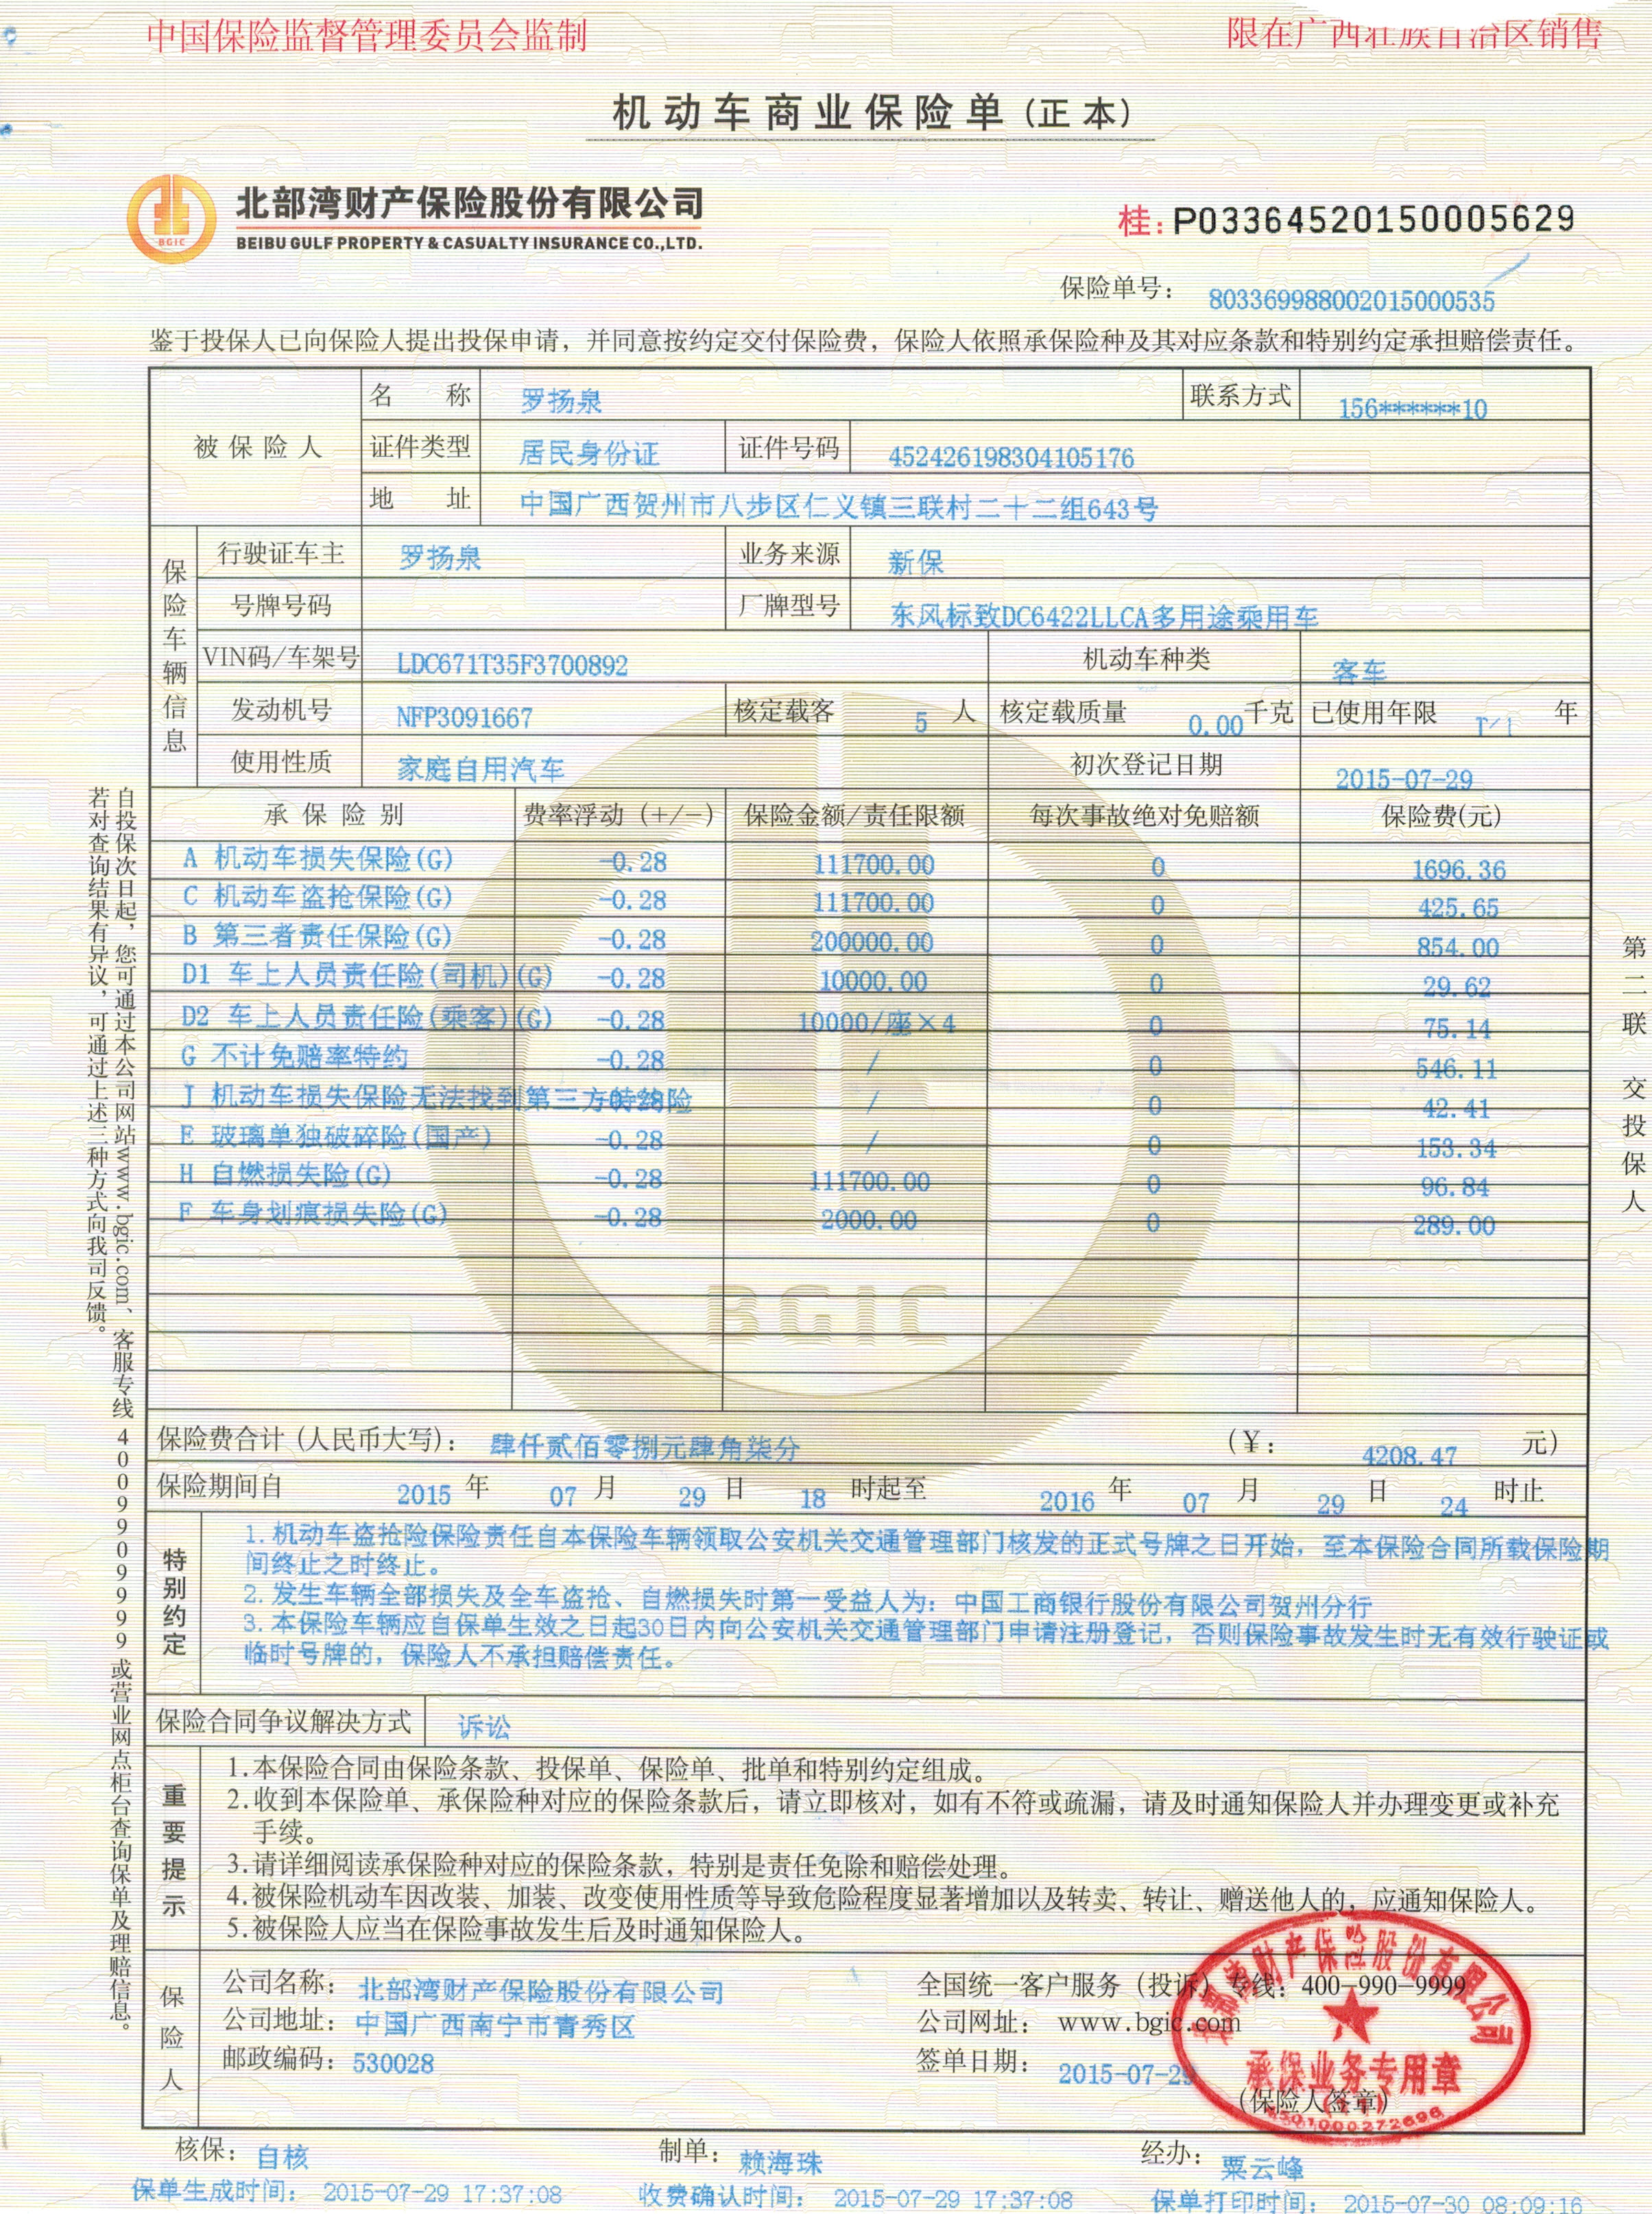 中国保险监督管理委员会监制
限在广西壮族自治区销售
机动车商业保险单(正本)
BGIC
北部湾财产保险股份有限公司
BEIBU GULF PROPERTY & CASUALTY INSURANCE CO.,LTD.
桂:P03364520150005629
保险单号: 803369988002015000535
鉴于投保人已向保险人提出投保申请,并同意按约定交付保险费,保险人依照承保险种及其对应条款和特别约定承担赔偿责任。
被保险人 名称 罗扬泉 联系方式 156******10
证件类型 居民身份证 证件号码 452426198304105176
地址 中国广西贺州市八步区仁义镇三联村二十二组643号
保险车辆信息
行驶证车主 罗扬泉 业务来源 新保
号牌号码 厂牌型号 东风标致DC6422LLCA多用途乘用车
VIN码/车架号 LDC671T35F3700892 机动车种类 客车
发动机号 NFP3091667 核定载客 5 人 核定载质量 0.00 千克 已使用年限 年
使用性质 家庭自用汽车 初次登记日期 2015-07-29
承保险别 费率浮动(+/-) 保险金额/责任限额 每次事故绝对免赔额 保险费(元)
A 机动车损失保险(G) -0.28 111700.00 0 1696.36
C 机动车盗抢保险(G) -0.28 111700.00 0 425.65
B 第三者责任保险(G) -0.28 200000.00 0 854.00
D1 车上人员责任险(司机)(G) -0.28 10000.00 0 29.62
D2 车上人员责任险(乘客)(G) -0.28 10000/座×4 0 75.14
G 不计免赔率特约 -0.28 / 0 546.11
J 机动车损失保险无法找到第三方特约险 -0.28 / 0 42.41
E 玻璃单独破碎险(国产) -0.28 / 0 153.34
H 自燃损失险(G) -0.28 111700.00 0 96.84
F 车身划痕损失险(G) -0.28 2000.00 0 289.00
BGIC
保险费合计(人民币大写): 肆仟贰佰零捌元肆角柒分 (¥: 4208.47 元)
保险期间自 2015 年 07 月 29 日 18 时起至 2016 年 07 月 29 日 24 时止
特别约定
1. 机动车盗抢险保险责任自本保险车辆领取公安机关交通管理部门核发的正式号牌之日开始,至本保险合同所载保险期
间终止之时终止。
2. 发生车辆全部损失及全车盗抢、自燃损失时第一受益人为: 中国工商银行股份有限公司贺州分行
3. 本保险车辆应自保单生效之日起30日内向公安机关交通管理部门申请注册登记,否则保险事故发生时无有效行驶证或
临时号牌的,保险人不承担赔偿责任。
保险合同争议解决方式 诉讼
重要提示
1.本保险合同由保险条款、投保单、保险单、批单和特别约定组成。
2.收到本保险单、承保险种对应的保险条款后,请立即核对,如有不符或疏漏,请及时通知保险人并办理变更或补充
手续。
3.请详细阅读承保险种对应的保险条款,特别是责任免除和赔偿处理。
4.被保险机动车因改装、加装、改变使用性质等导致危险程度显著增加以及转卖、转让、赠送他人的,应通知保险人。
5.被保险人应当在保险事故发生后及时通知保险人。
保险人
公司名称: 北部湾财产保险股份有限公司 全国统一客户服务(投诉)专线: 400-990-9999
公司地址: 中国广西南宁市青秀区 公司网址: www.bgic.com
邮政编码: 530028 签单日期: 2015-07-29
(保险人签章)
北部湾财产保险股份有限公司
承保业务专用章
核保: 自核 制单: 赖海珠 经办: 粟云峰
保单生成时间: 2015-07-29 17:37:08 收费确认时间: 2015-07-29 17:37:08 保单打印时间: 2015-07-30 08:09:16
自投保次日起,您可通过本公司网站www.bgic.com、客服专线4009909999或营业网点柜台查询保单及理赔信息。
若对查询结果有异议,可通过上述三种方式向我司反馈。
第二联 交投保人